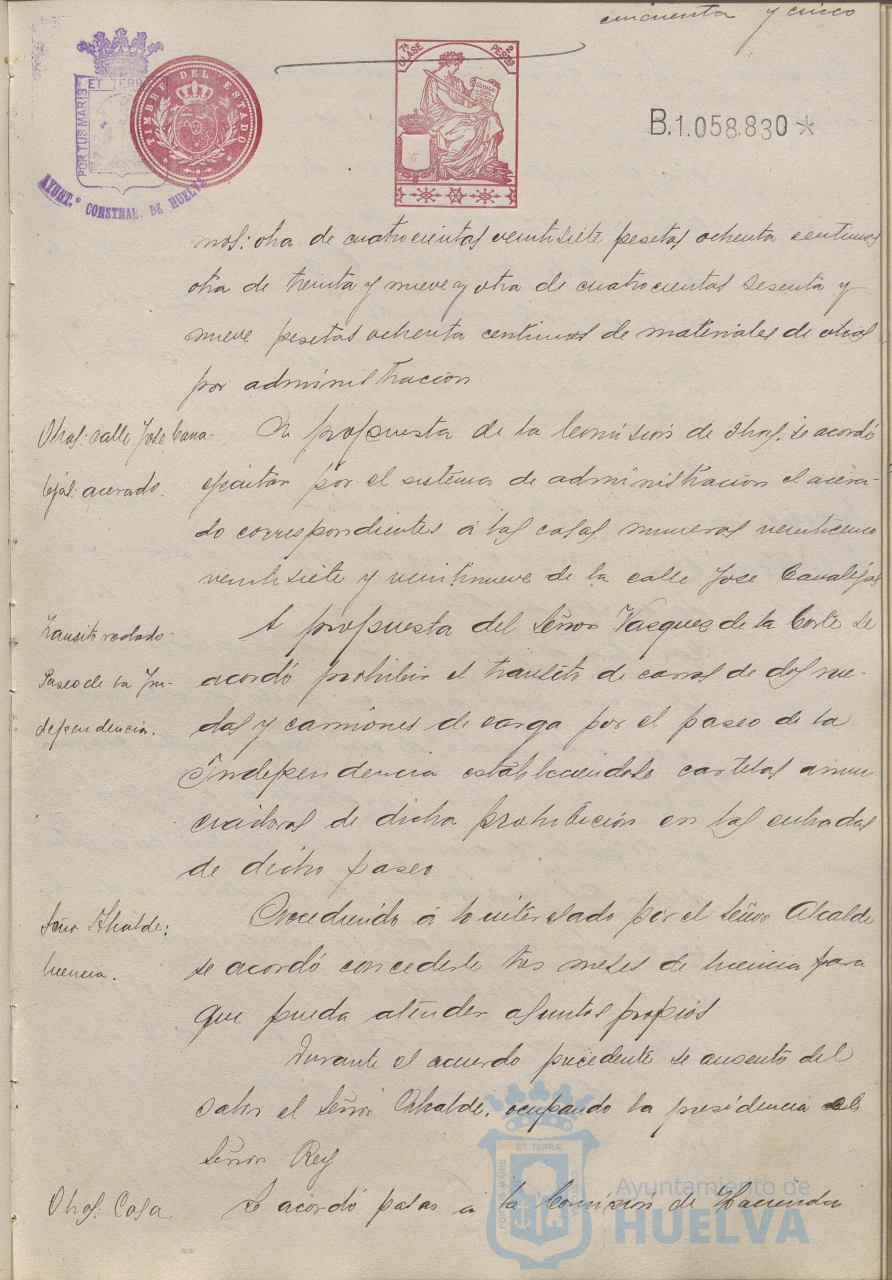 cincuenta y cinco
7ª CLASE
2 PESETAS
TIMBRE DEL ESTADO
PORTUS MARIS ET TERRÆ
AYUNT.º CONSTNAL. DE HUELVA
B.1.058.830*
nos: otra de cuatrocientas veintisiete pesetas ochenta centimos
otra de treinta y nueve y otra de cuatrocientas sesenta y
nueve pesetas ochenta centimos de materiales de obras
por administracion
Obras: calle Jose Cana-
lejas: acerado.
A propuesta de la Comision de Obras, se acordó
ejecutar por el sistema de administracion el acera-
do correspondientes á las casas numeros veinticinco
veintisiete y veintinueve de la calle Jose Canalejas
Transito rodado
Paseo de la In-
dependencia.
A propuesta del Señor Vasquez de la Corte se
acordó prohibir el transito de carros de dos rue-
das y camiones de carga por el paseo de la
Independencia estableciendose cartelas anun
ciadoras de dicha prohibicion en las entradas
de dicho paseo
Señor Alcalde:
licencia.
Accediendo á lo interesado por el Señor Alcalde
se acordó concederle tres meses de licencia para
que pueda atender asuntos propios
Durante el acuerdo precedente se ausentó del
salon el Señor Alcalde, ocupando la presidencia el
Señor Rey
Obras: Casa
Se acordó pasar a la Comision de Hacienda
PORTUS MARIS ET TERRÆ CUSTODIAS
Ayuntamiento de
HUELVA